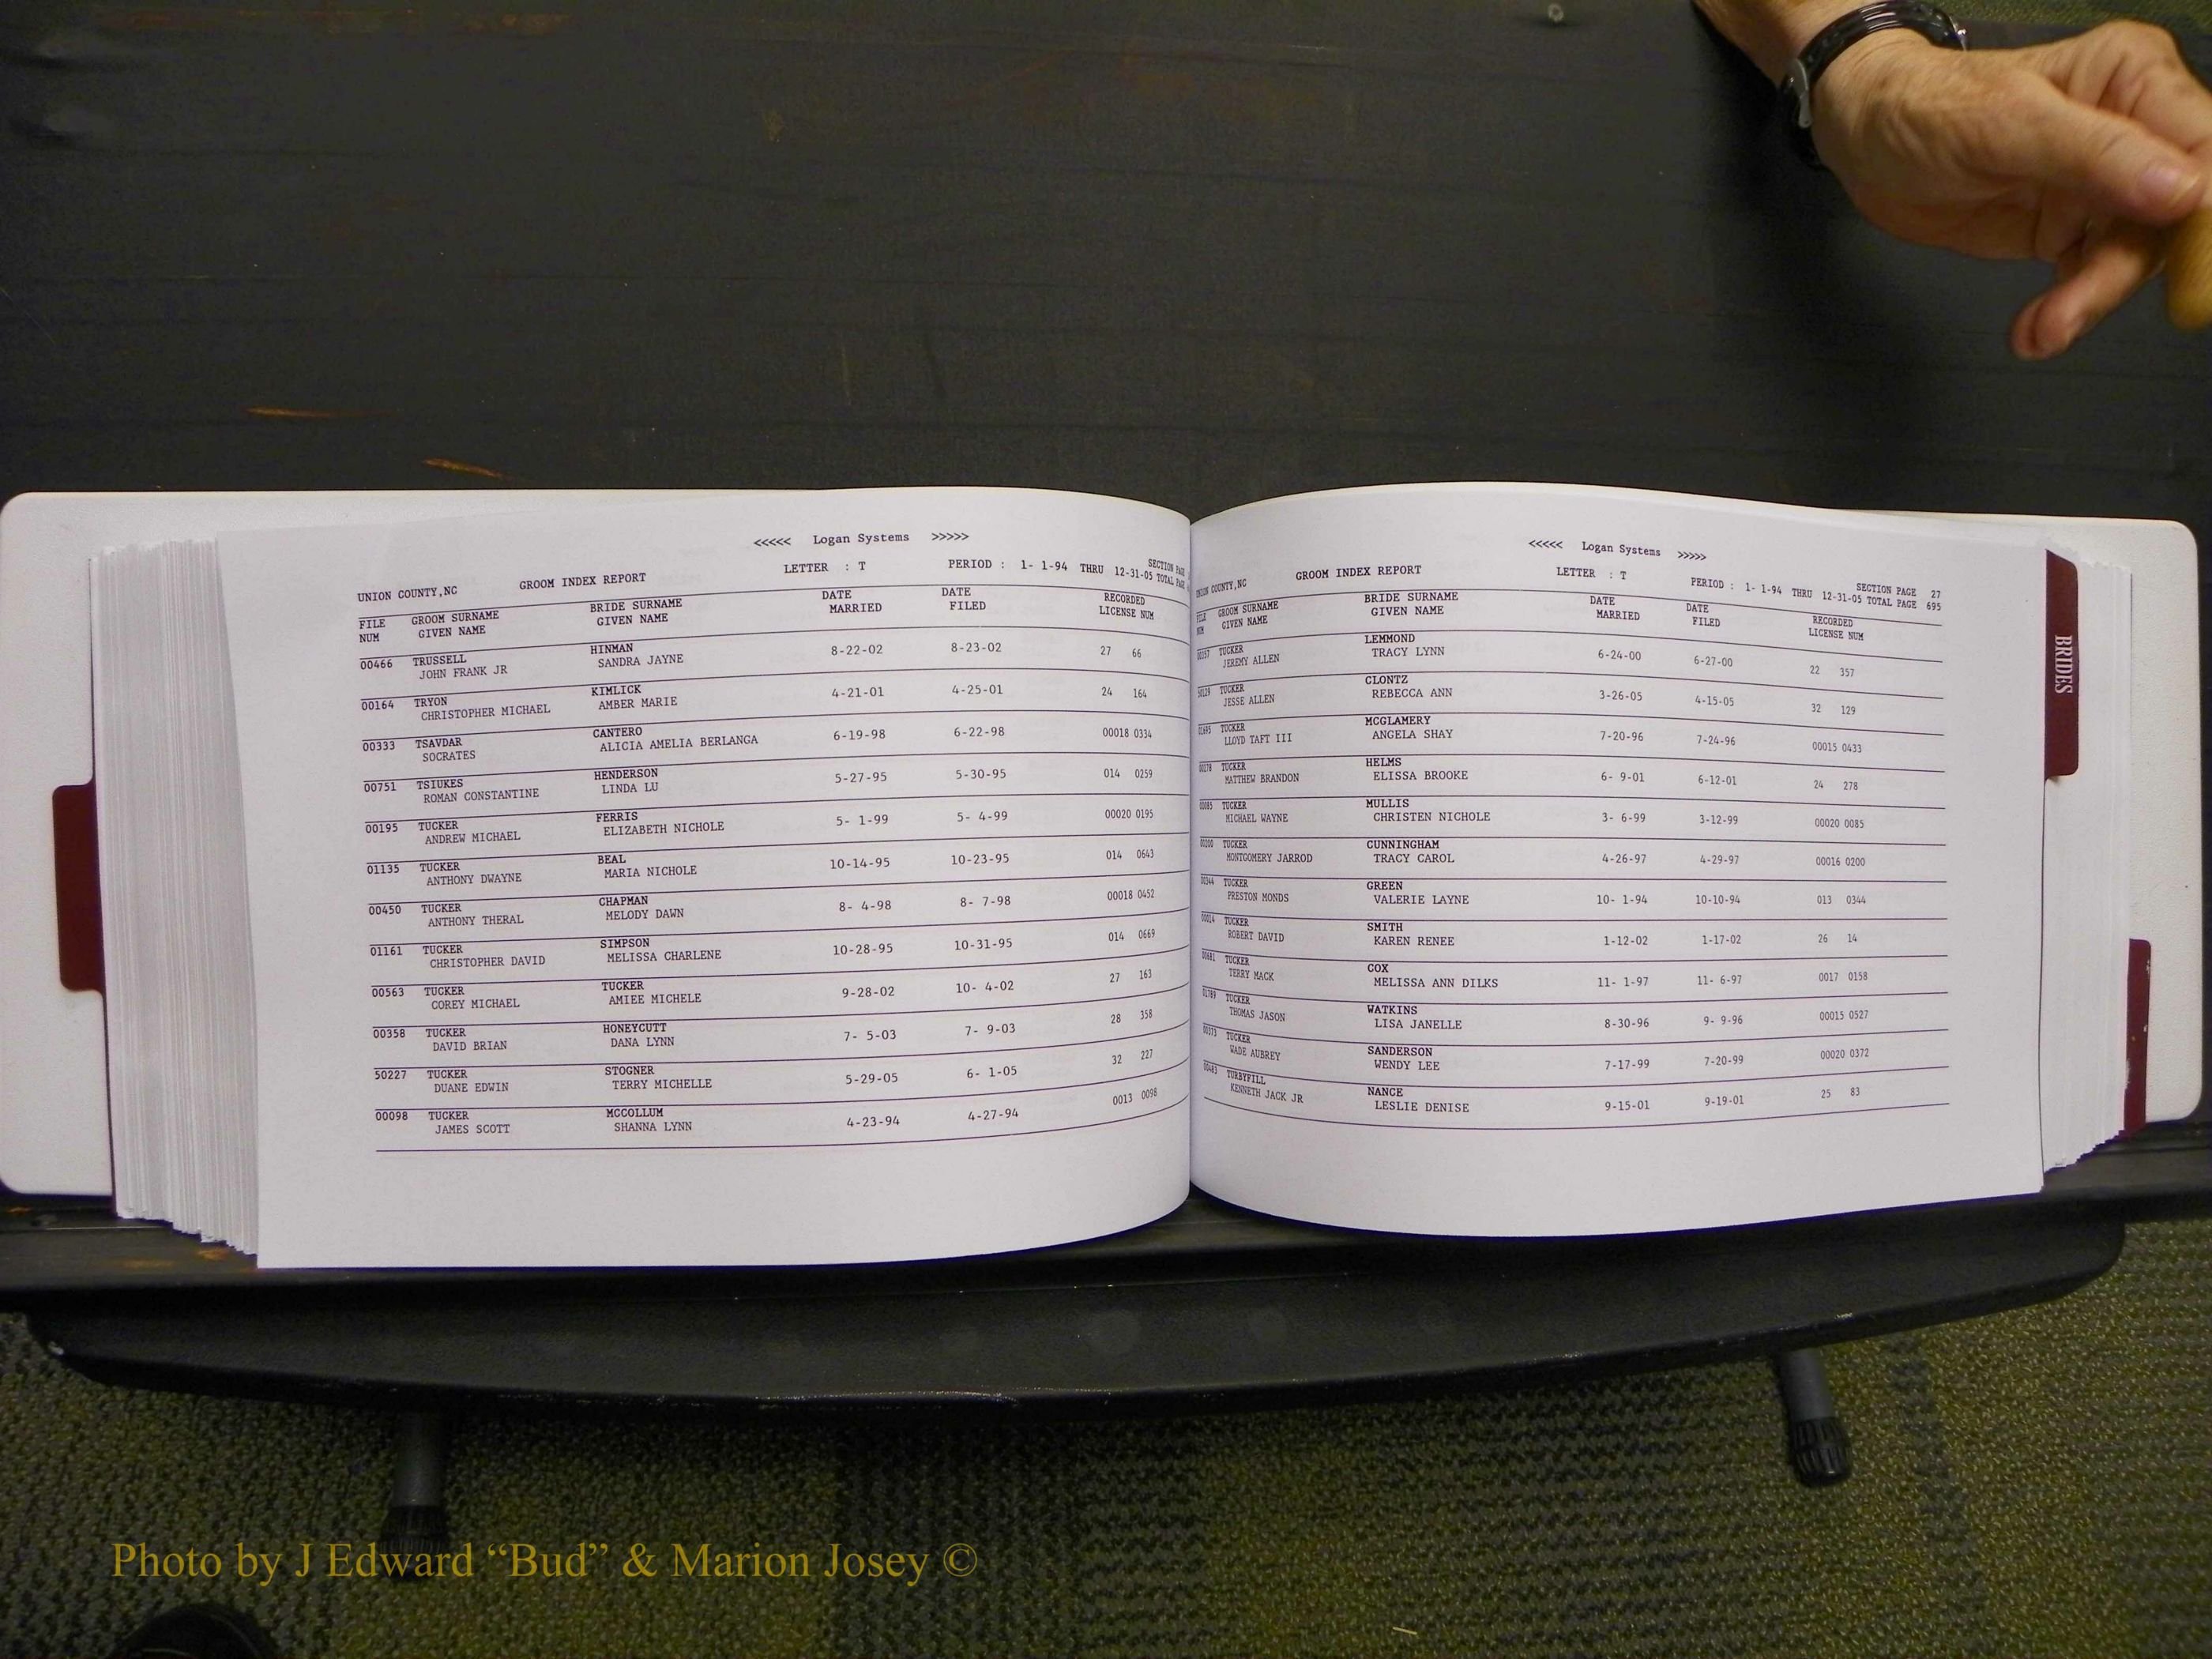 <<<<< Logan Systems >>>>>
UNION COUNTY,NC GROOM INDEX REPORT LETTER : T PERIOD : 1- 1-94 THRU 12-31-05 SECTION PAGE
TOTAL PAGE
FILE GROOM SURNAME BRIDE SURNAME DATE DATE RECORDED
NUM GIVEN NAME GIVEN NAME MARRIED FILED LICENSE NUM
00466 TRUSSELL HINMAN 8-22-02 8-23-02 27 66
JOHN FRANK JR SANDRA JAYNE
00164 TRYON KIMLICK 4-21-01 4-25-01 24 164
CHRISTOPHER MICHAEL AMBER MARIE
00333 TSAVDAR CANTERO 6-19-98 6-22-98 00018 0334
SOCRATES ALICIA AMELIA BERLANGA
00751 TSIUKES HENDERSON 5-27-95 5-30-95 014 0259
ROMAN CONSTANTINE LINDA LU
00195 TUCKER FERRIS 5- 1-99 5- 4-99 00020 0195
ANDREW MICHAEL ELIZABETH NICHOLE
01135 TUCKER BEAL 10-14-95 10-23-95 014 0643
ANTHONY DWAYNE MARIA NICHOLE
00450 TUCKER CHAPMAN 8- 4-98 8- 7-98 00018 0452
ANTHONY THERAL MELODY DAWN
01161 TUCKER SIMPSON 10-28-95 10-31-95 014 0669
CHRISTOPHER DAVID MELISSA CHARLENE
00563 TUCKER TUCKER 9-28-02 10- 4-02 27 163
COREY MICHAEL AMIEE MICHELE
00358 TUCKER HONEYCUTT 7- 5-03 7- 9-03 28 358
DAVID BRIAN DANA LYNN
50227 TUCKER STOGNER 5-29-05 6- 1-05 32 227
DUANE EDWIN TERRY MICHELLE
00098 TUCKER MCCOLLUM 4-23-94 4-27-94 0013 0098
JAMES SCOTT SHANNA LYNN
<<<<< Logan Systems >>>>>
UNION COUNTY,NC GROOM INDEX REPORT LETTER : T PERIOD : 1- 1-94 THRU 12-31-05 SECTION PAGE 27
TOTAL PAGE 695
FILE GROOM SURNAME BRIDE SURNAME DATE DATE RECORDED
NUM GIVEN NAME GIVEN NAME MARRIED FILED LICENSE NUM
00357 TUCKER LEMMOND 6-24-00 6-27-00 22 357
JEREMY ALLEN TRACY LYNN
50129 TUCKER CLONTZ 3-26-05 4-15-05 32 129
JESSE ALLEN REBECCA ANN
TUCKER MCGLAMERY 7-20-96 7-24-96 00015 0433
LLOYD TAFT III ANGELA SHAY
00278 TUCKER HELMS 6- 9-01 6-12-01 24 278
MATTHEW BRANDON ELISSA BROOKE
00085 TUCKER MULLIS 3- 6-99 3-12-99 00020 0085
MICHAEL WAYNE CHRISTEN NICHOLE
00200 TUCKER CUNNINGHAM 4-26-97 4-29-97 00016 0200
MONTGOMERY JARROD TRACY CAROL
00344 TUCKER GREEN 10- 1-94 10-10-94 013 0344
PRESTON MONDS VALERIE LAYNE
00014 TUCKER SMITH 1-12-02 1-17-02 26 14
ROBERT DAVID KAREN RENEE
00681 TUCKER COX 11- 1-97 11- 6-97 0017 0158
TERRY MACK MELISSA ANN DILKS
01789 TUCKER WATKINS 8-30-96 9- 9-96 00015 0527
THOMAS JASON LISA JANELLE
TUCKER SANDERSON 7-17-99 7-20-99 00020 0372
WADE AUBREY WENDY LEE
00483 TURBYFILL NANCE 9-15-01 9-19-01 25 83
KENNETH JACK JR LESLIE DENISE
BRIDES
Photo by J Edward “Bud” & Marion Josey ©